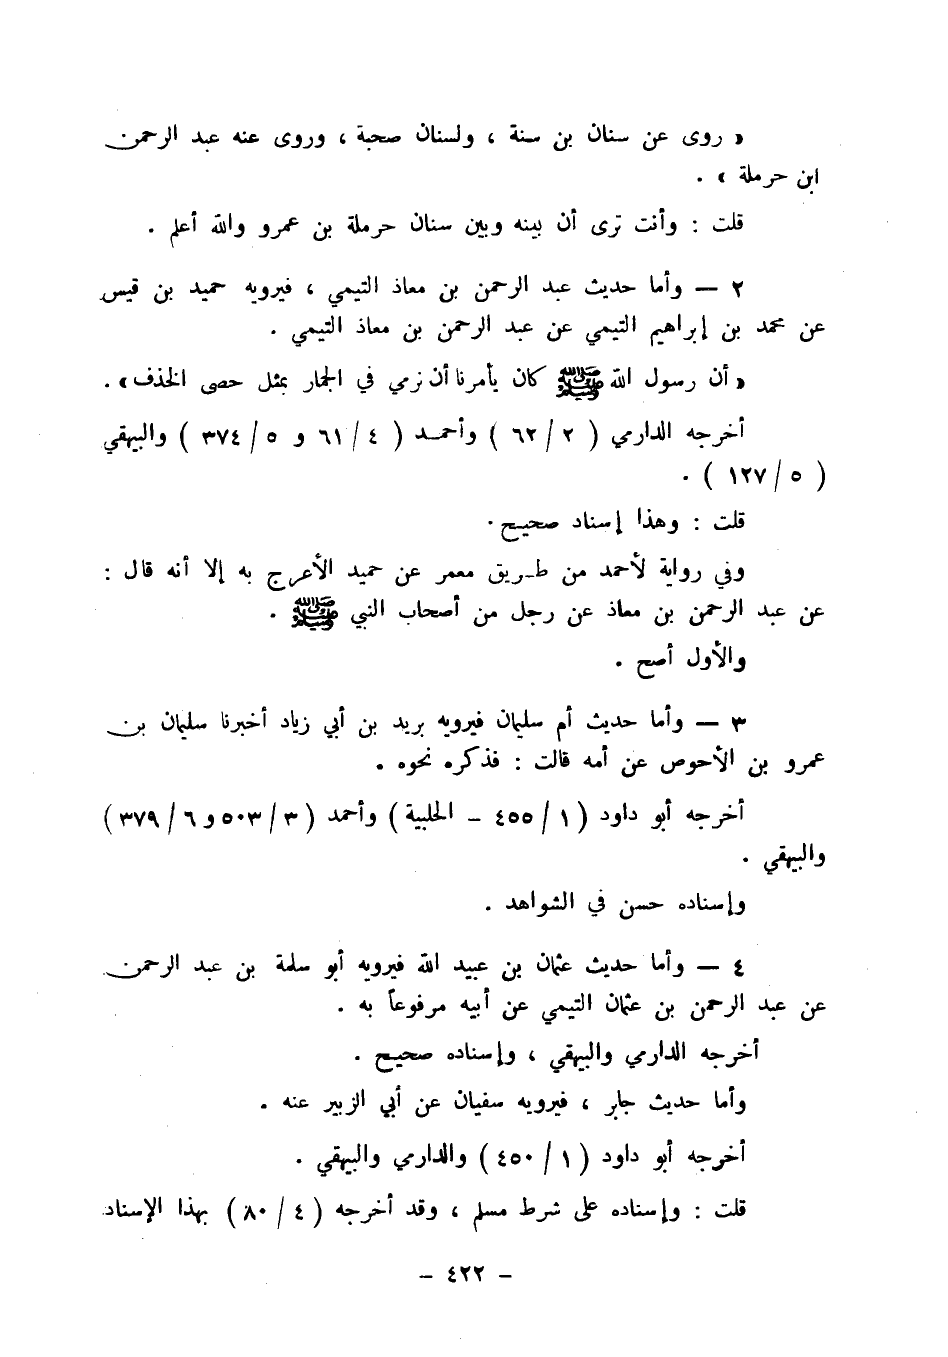 « روى عن سنان بن سنة ، ولسنان صحبة ، وروى عنه عبد الرحمن
ابن حرملة » .
قلت : وأنت ترى أن بينه وبين سنان حرملة بن عمرو والله أعلم .
٢ — وأما حديث عبد الرحمن بن معاذ التيمي ، فيرويه حميد بن قيس
عن محمد بن إبراهيم التيمي عن عبد الرحمن بن معاذ التيمي .
« أن رسول الله ﷺ كان يأمرنا أن نرمي في الجمار بمثل حصى الخذف » .
أخرجه الدارمي ( ٢ / ٦٢ ) وأحمد ( ٤ / ٦١ و ٥ / ٣٧٤ ) والبيهقي
( ٥ / ١٢٧ ) .
قلت : وهذا إسناد صحيح .
وفي رواية لأحمد من طريق معمر عن حميد الأعرج به إلا أنه قال :
عن عبد الرحمن بن معاذ عن رجل من أصحاب النبي ﷺ .
والأول أصح .
٣ — وأما حديث أم سليمان فيرويه بريد بن أبي زياد أخبرنا سليمان بن
عمرو بن الأحوص عن أمه قالت : فذكره نحوه .
أخرجه أبو داود ( ١ / ٤٥٥ - الحلبية ) وأحمد ( ٣ / ٥٠٣ و ٦ / ٣٧٩ )
والبيهقي .
وإسناده حسن في الشواهد .
٤ — وأما حديث عثمان بن عبيد الله فيرويه أبو سلمة بن عبد الرحمن
عن عبد الرحمن بن عثمان التيمي عن أبيه مرفوعاً به .
أخرجه الدارمي والبيهقي ، وإسناده صحيح .
وأما حديث جابر ، فيرويه سفيان عن أبي الزبير عنه .
أخرجه أبو داود ( ١ / ٤٥٠ ) والدارمي والبيهقي .
قلت : وإسناده على شرط مسلم ، وقد أخرجه ( ٤ / ٨٠ ) بهذا الإسناد
- ٤٢٢ -